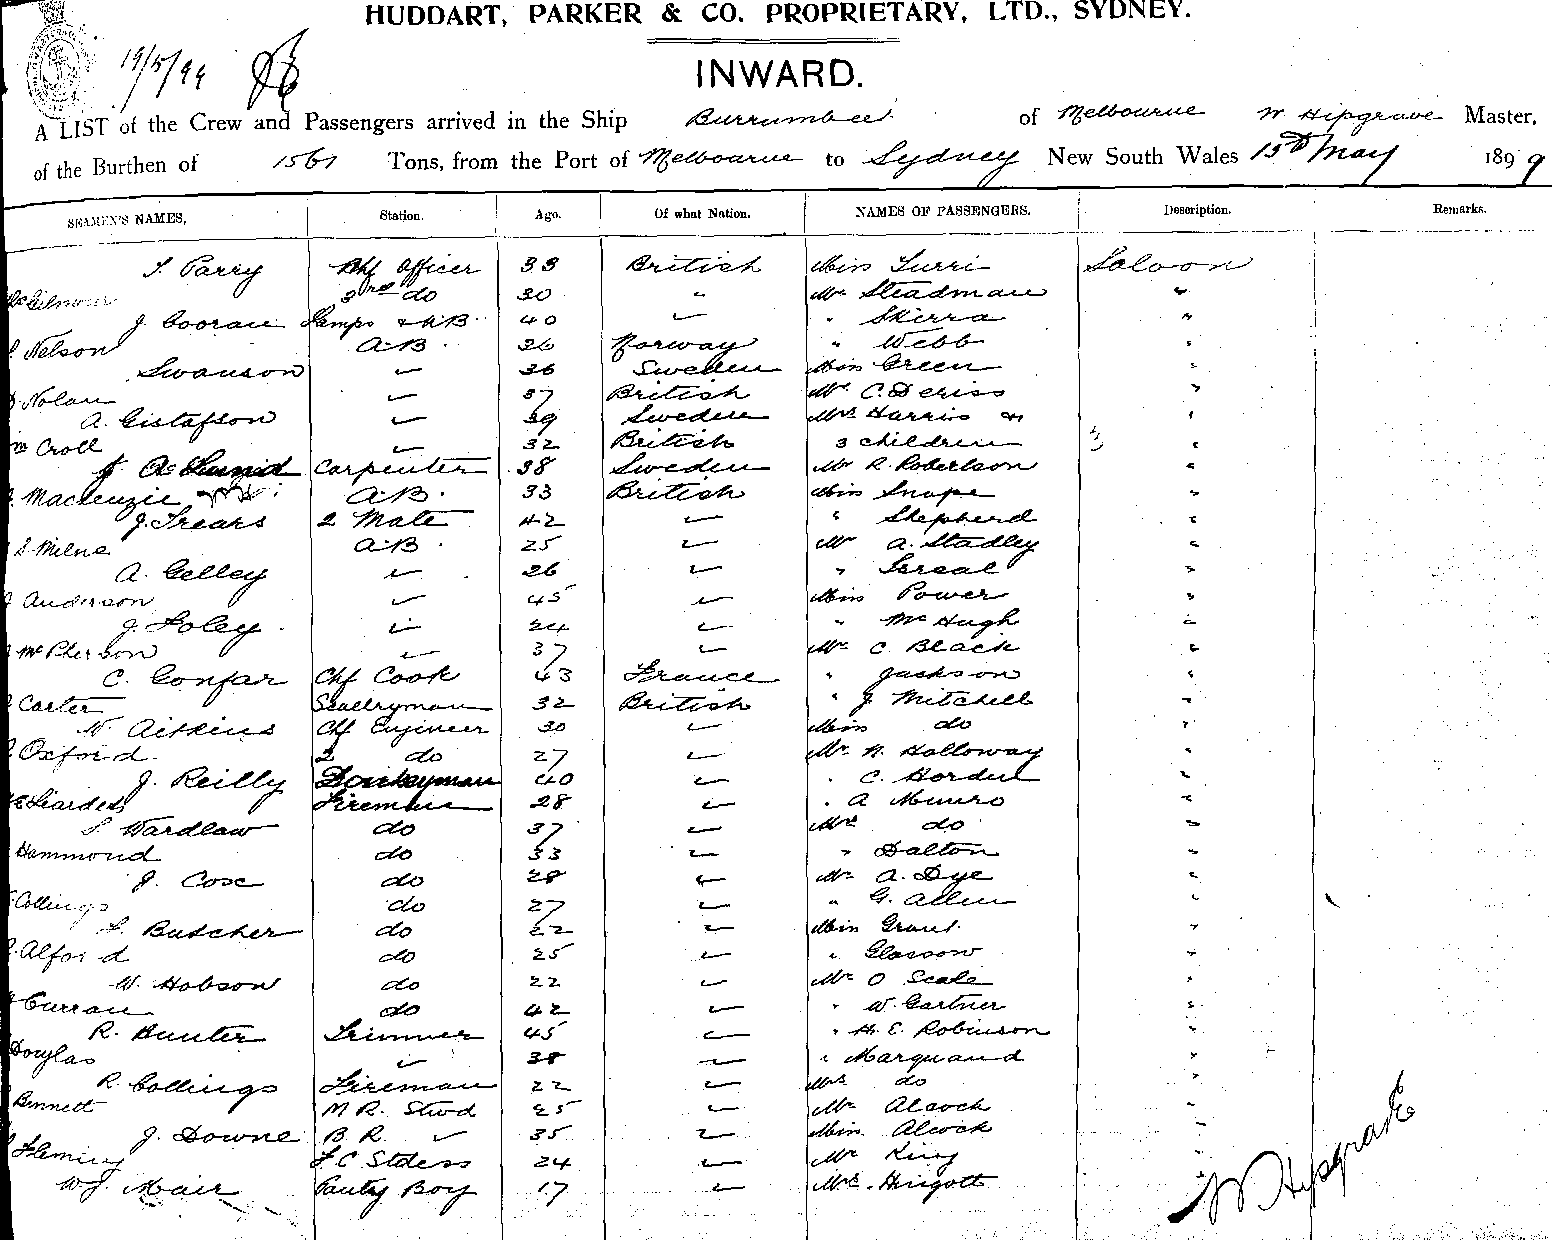 HUDDART, PARKER & CO. PROPRIETARY, LTD., SYDNEY.
19/5/99
INWARD.
A LIST of the Crew and Passengers arrived in the Ship Burrumbeet of Melbourne W Hipgrave Master,
of the Burthen of 1561 Tons, from the Port of Melbourne to Sydney New South Wales 15th May 1899
SEAMEN'S NAMES, Station. Age. Of what Nation. NAMES OF PASSENGERS. Description. Remarks.
Parry Chf Officer 33 British Miss Saloon
McGilmour 3rd do 30 " Mr Steadman "
J. Cooran Lamps & AB. 40 " " Skirra "
Nelson A.B. 26 Norway " Webb "
Swanson " 36 Sweden Miss Green "
Nolan " 37 British Mr C. Deriss "
A. Gistafson " 39 Sweden Mrs Harris &
Croll " 32 British 3 children "
Carpenter 38 Sweden Mr R. Robertson "
Mackenzie A.B. 33 British Miss Snape "
J. Frears 2 Mate 42 " " Shepherd "
S. Milne A.B. 25 " Mr A. Stadley "
A. Gelley " 26 " " "
Anderson " 45 " Miss Power "
J. Foley " 24 " " McHugh "
McPherson " 37 " Mr C. Black "
C. Gonfar Chf Cook 43 France " Jackson "
Carter Scullryman 32 British " J. Mitchell "
N. Aitkins Chf Engineer 30 " Miss do "
Oxford 2 do 27 " Mr N. Holloway "
J. Reilly Donkeyman 40 " " C. Horden "
Liardet Fireman 28 " " A Munro "
Wardlaw do 37 " Mrs do "
Hammond do 33 " " Dalton "
J. Cox do 28 " Mr A. Dye "
Collings do 27 " " G. Allen "
Butcher do 22 " Miss Grant "
Alford do 25 " " Glasson "
W. Hobson do 22 " Mr O Scale "
Curran do 42 " " W. Gartner "
R. Hunter Trimmer 45 " " H. E. Robinson "
Douglas " 38 " " Marquand "
R. Collings Fireman 22 " Mrs do "
Bennett M R. Stwd 25 " Mr Alcock "
J. Downe B. R. " 35 " Miss Alcock "
Fleming F. C Stdess 24 " Mr King "
W. J. Mair Pantry Boy 17 " Mrs. Hingott
W Hipgrave